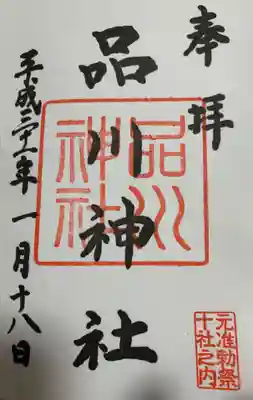 奉拝
品川神社
品川神社
元准勅祭
十社之内
平成三十一年一月十八日